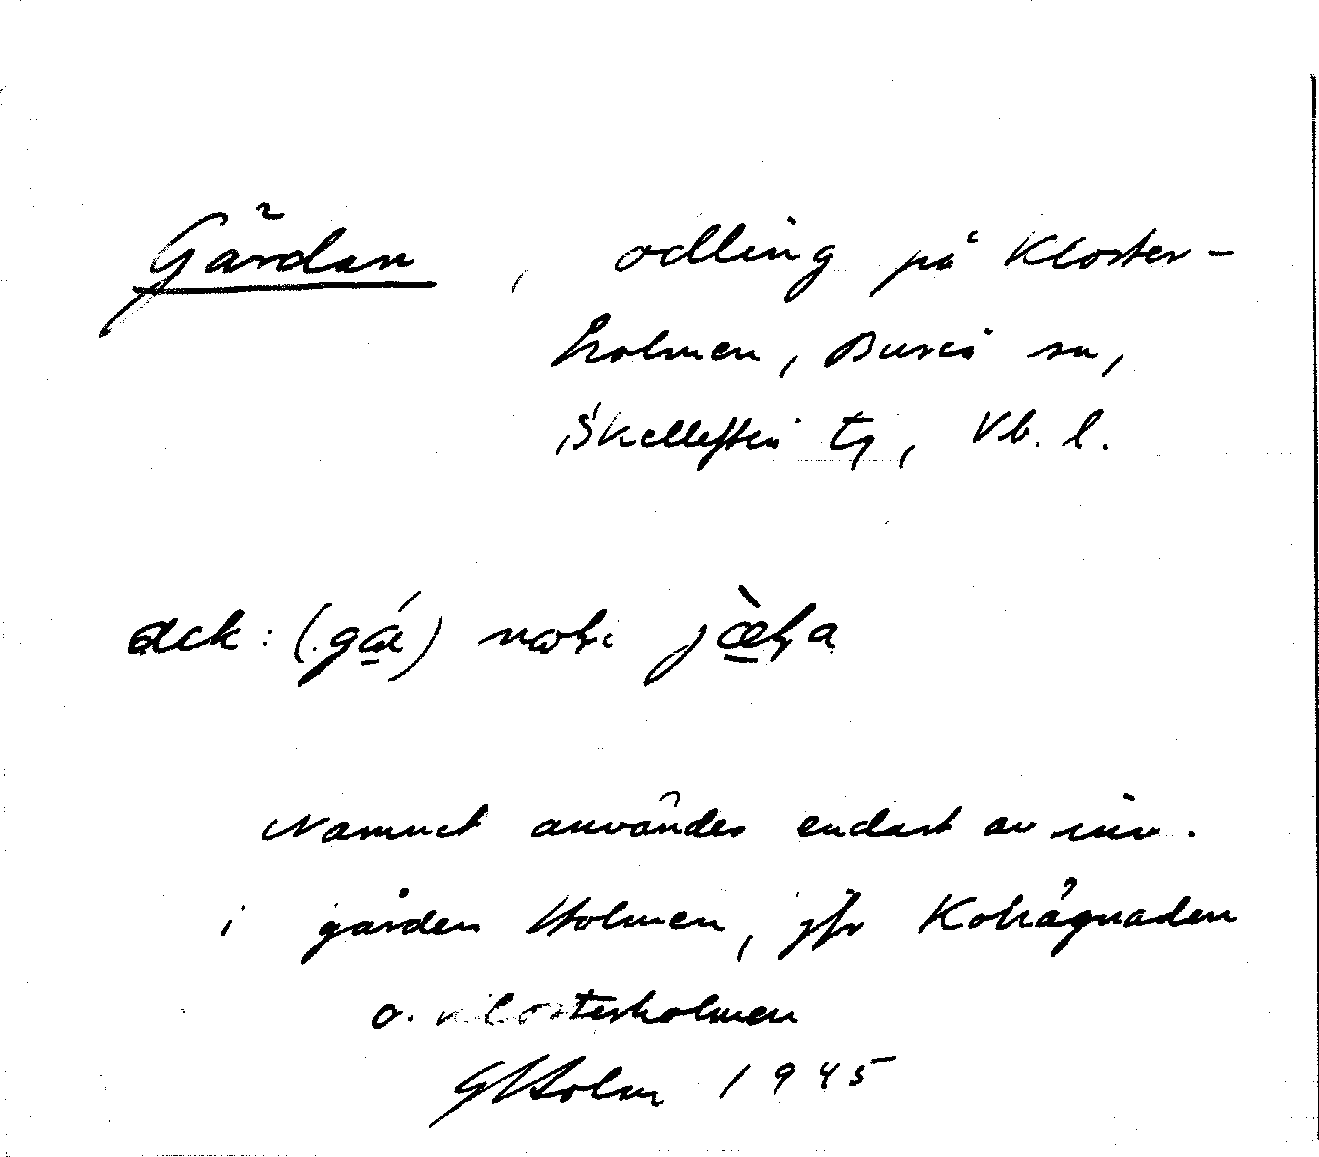 Gärdan, odling på Kloster-
holmen, Bureå sn,
Skellefteå tg, Vb. l.
ack: (gá)
Namnet användes endast av inv.
i gården Holmen, jfr Kohägnaden
o. Klosterholmen
G Holm 1945